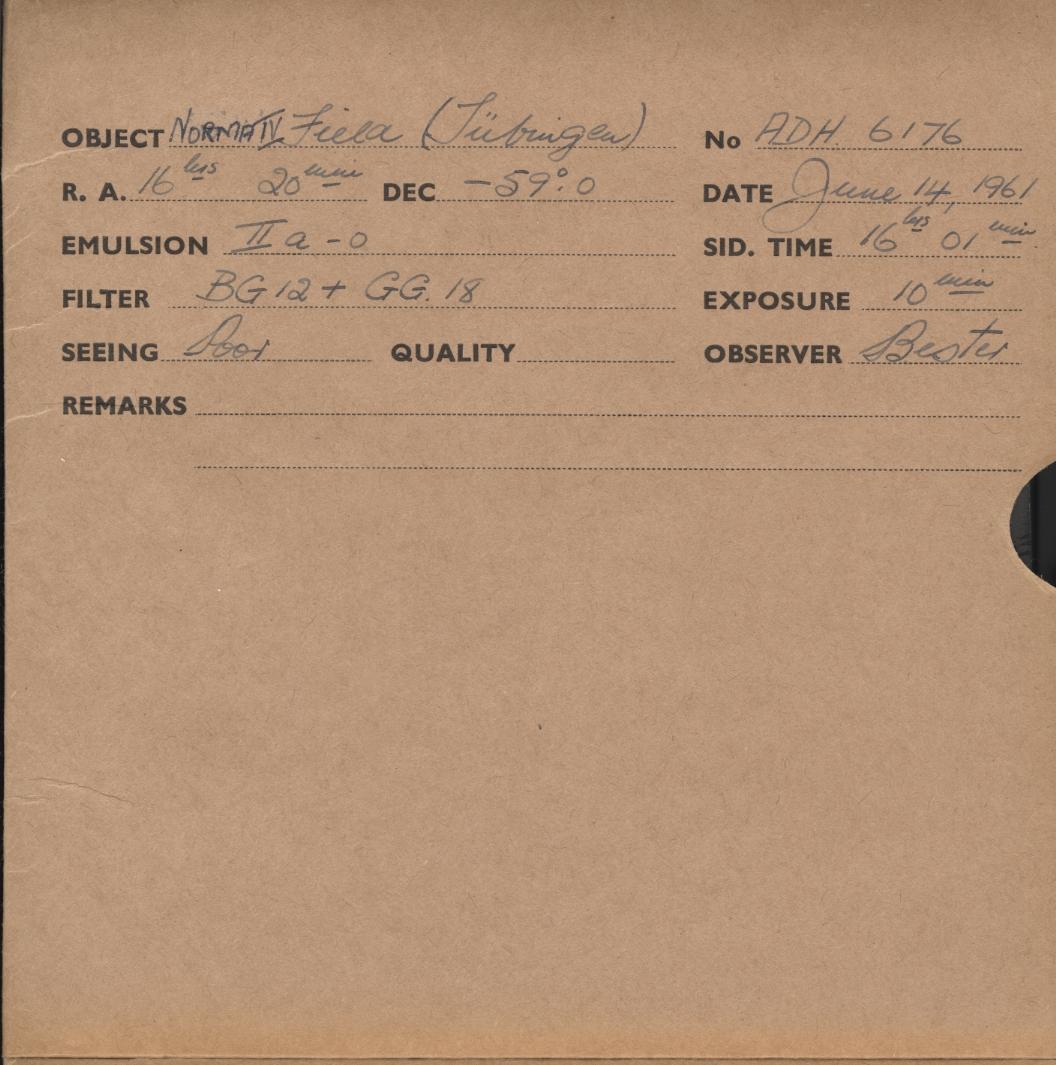 OBJECT NORMA IV Field (Tübingen) No ADH 6176
R. A. 16 hrs 20 min DEC -59°.0 DATE June 14, 1961
EMULSION IIa-o SID. TIME 16 hrs 01 min
FILTER BG12 + GG.18 EXPOSURE 10 min
SEEING Poor QUALITY OBSERVER Bester
REMARKS